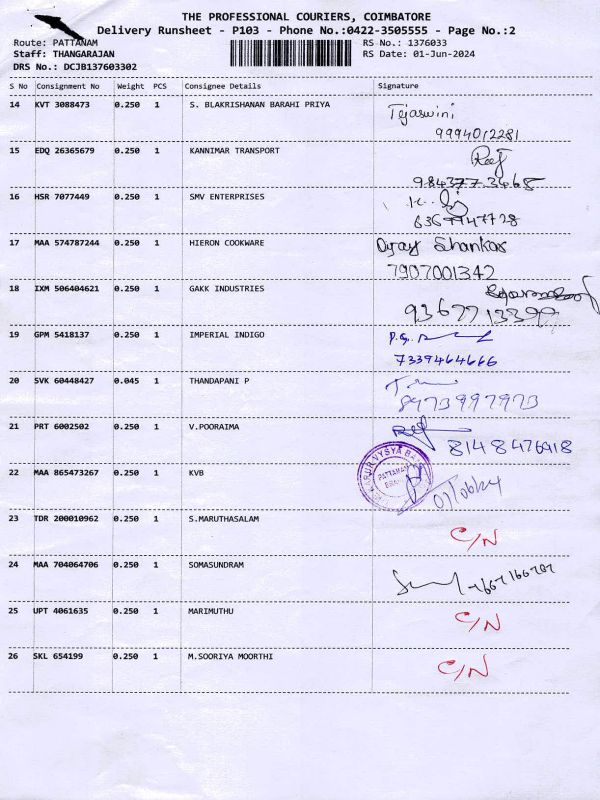 THE PROFESSIONAL COURIERS, COIMBATORE
Delivery Runsheet - P103 - Phone No.:0422-3505555 - Page No.:2
Route: PATTANAM RS No.: 1376033
Staff: THANGARAJAN RS Date: 01-Jun-2024
DRS No.: DCJB137603302
S No Consignment No Weight PCS Consignee Details Signature
14 KVT 3088473 0.250 1 S. BLAKRISHANAN BARAHI PRIYA Tejaswini
9994012281
15 EDQ 26365679 0.250 1 KANNIMAR TRANSPORT
9843773468
16 HSR 7077449 0.250 1 SMV ENTERPRISES
17 MAA 574787244 0.250 1 HIERON COOKWARE Shankar
7907001342
18 IXM 506404621 0.250 1 GAKK INDUSTRIES
19 GPM 5418137 0.250 1 IMPERIAL INDIGO
7339464666
20 SVK 60448427 0.045 1 THANDAPANI P
8973997973
21 PRT 6002502 0.250 1 V.POORAIMA
8148476918
22 MAA 865473267 0.250 1 KVB
23 TDR 200010962 0.250 1 S.MARUTHASALAM C/N
24 MAA 704064706 0.250 1 SOMASUNDRAM
25 UPT 4061635 0.250 1 MARIMUTHU C/N
26 SKL 654199 0.250 1 M.SOORIYA MOORTHI C/N